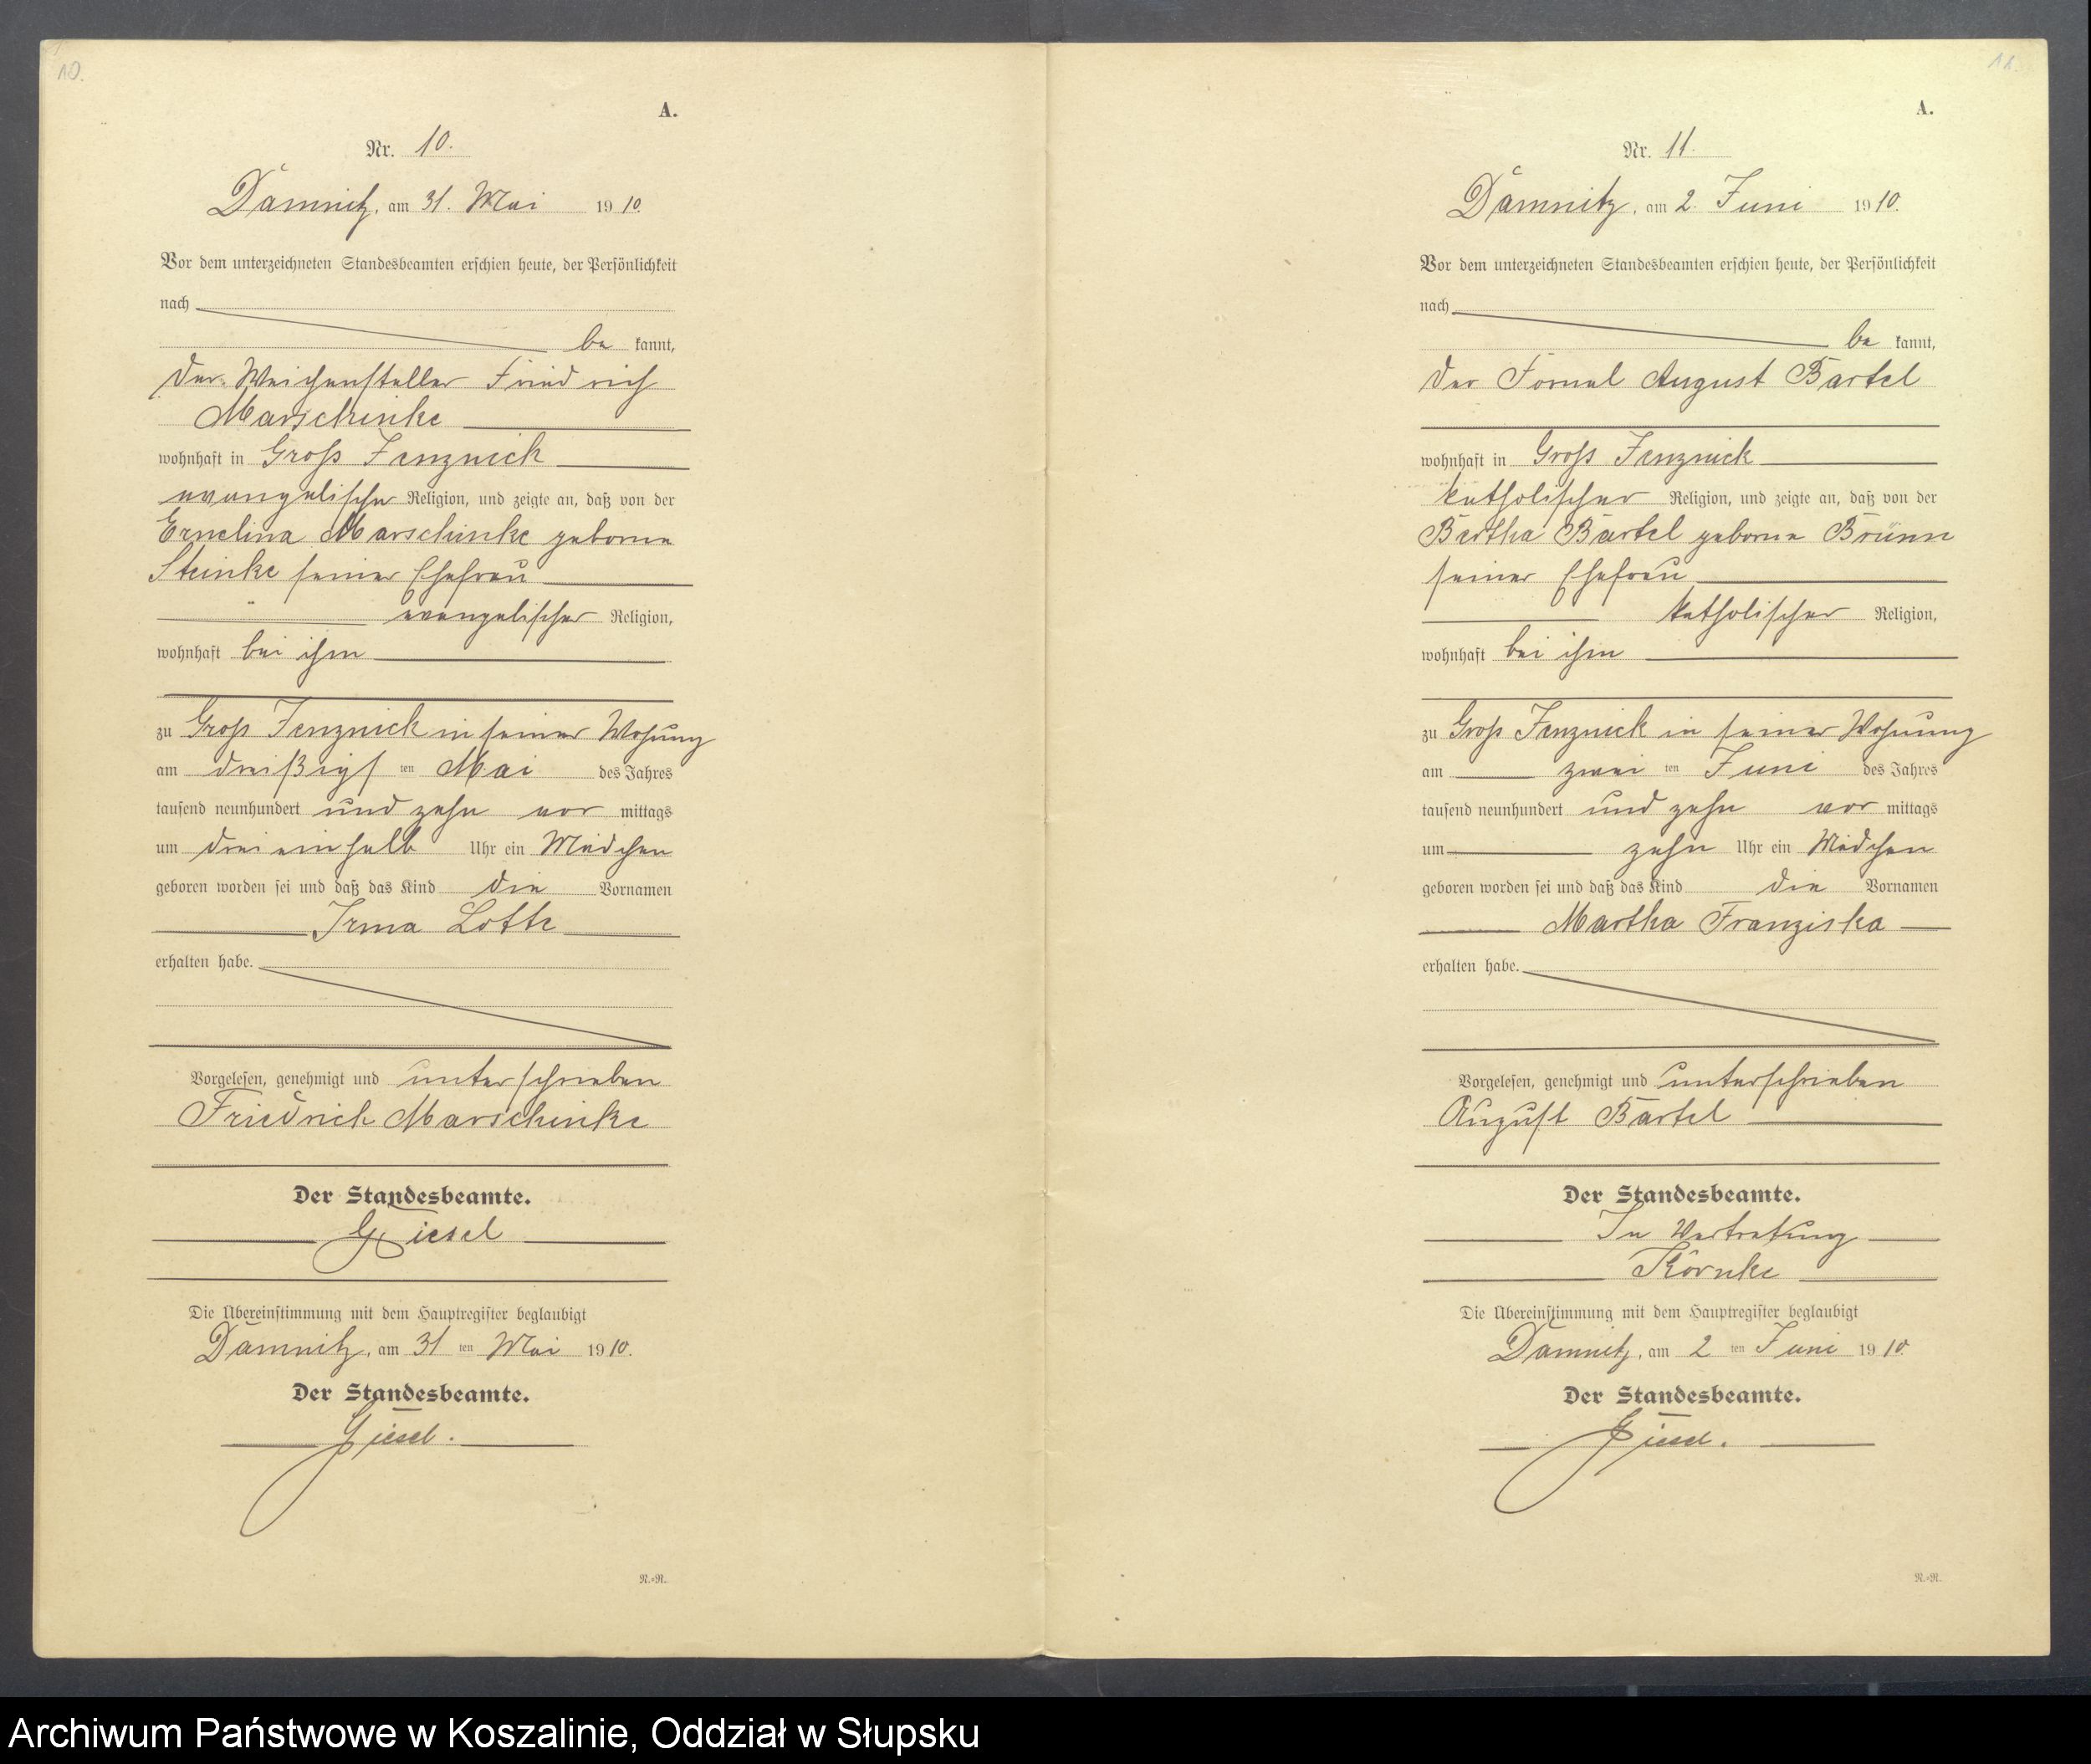 10.
A.
Nr. 10.
Damnitz, am 31. Mai 1910.
Vor dem unterzeichneten Standesbeamten erschien heute, der Persönlichkeit
nach
be kannt,
der Weichensteller Friedrich
Marschinke
wohnhaft in Gross Jenznick
evangelischer Religion, und zeigte an, daß von der
Marschinke geborne
Steinke seiner Ehefrau
evangelischer Religion,
wohnhaft bei ihm
zu Gross Jenznick in seiner Wohnung
am dreißigs ten Mai des Jahres
tausend neunhundert und zehn vor mittags
um drei ein halb Uhr ein Mädchen
geboren worden sei und daß das Kind die Vornamen
Irma Lotte
erhalten habe.
Vorgelesen, genehmigt und unterschrieben
Friedrich Marschinke
Der Standesbeamte.
Giesel
Die Übereinstimmung mit dem Hauptregister beglaubigt
Damnitz, am 31 ten Mai 1910.
Der Standesbeamte.
Giesel.
R.=R.
11.
A.
Nr. 11.
Damnitz, am 2. Juni 1910.
Vor dem unterzeichneten Standesbeamten erschien heute, der Persönlichkeit
nach
be kannt,
der Fornal August Bartel
wohnhaft in Gross Jenznick
katholischer Religion, und zeigte an, daß von der
Bertha Bartel geborne Brünn
seiner Ehefrau
katholischer Religion,
wohnhaft bei ihm
zu Gross Jenznick in seiner Wohnung
am zwei ten Juni des Jahres
tausend neunhundert und zehn vor mittags
um zehn Uhr ein Mädchen
geboren worden sei und daß das Kind die Vornamen
Martha Franziska
erhalten habe.
Vorgelesen, genehmigt und unterschrieben
August Bartel
Der Standesbeamte.
In Vertretung
Körnke
Die Übereinstimmung mit dem Hauptregister beglaubigt
Damnitz, am 2 ten Juni 1910.
Der Standesbeamte.
Giesel.
R.=R.
Archiwum Państwowe w Koszalinie, Oddział w Słupsku